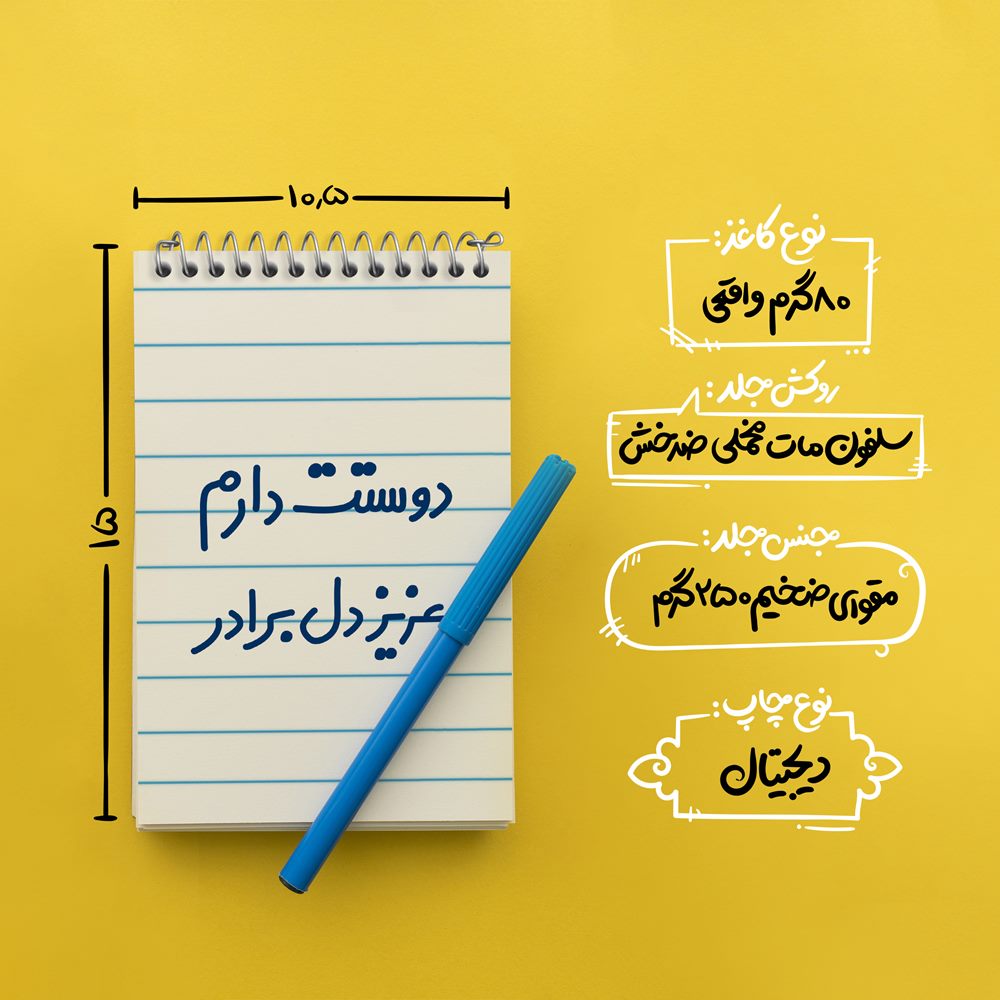 ۱۰٫۵
۱۵
دوستت دارم
عزیز دل برادر
نوع کاغذ:
۸۰گرم واقعی
روکش جلد:
سلفون مات مخملی ضدخش
جنس جلد:
مقوای ضخیم ۲۵۰گرم
نوع چاپ:
دیجیتال